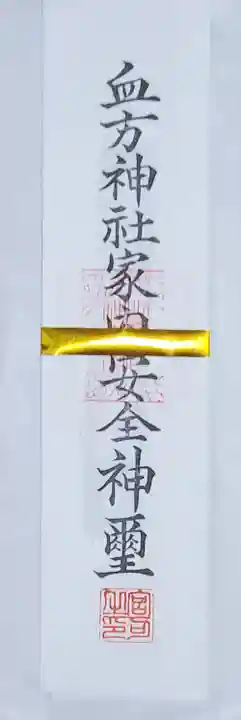 血方神社家内安全神璽